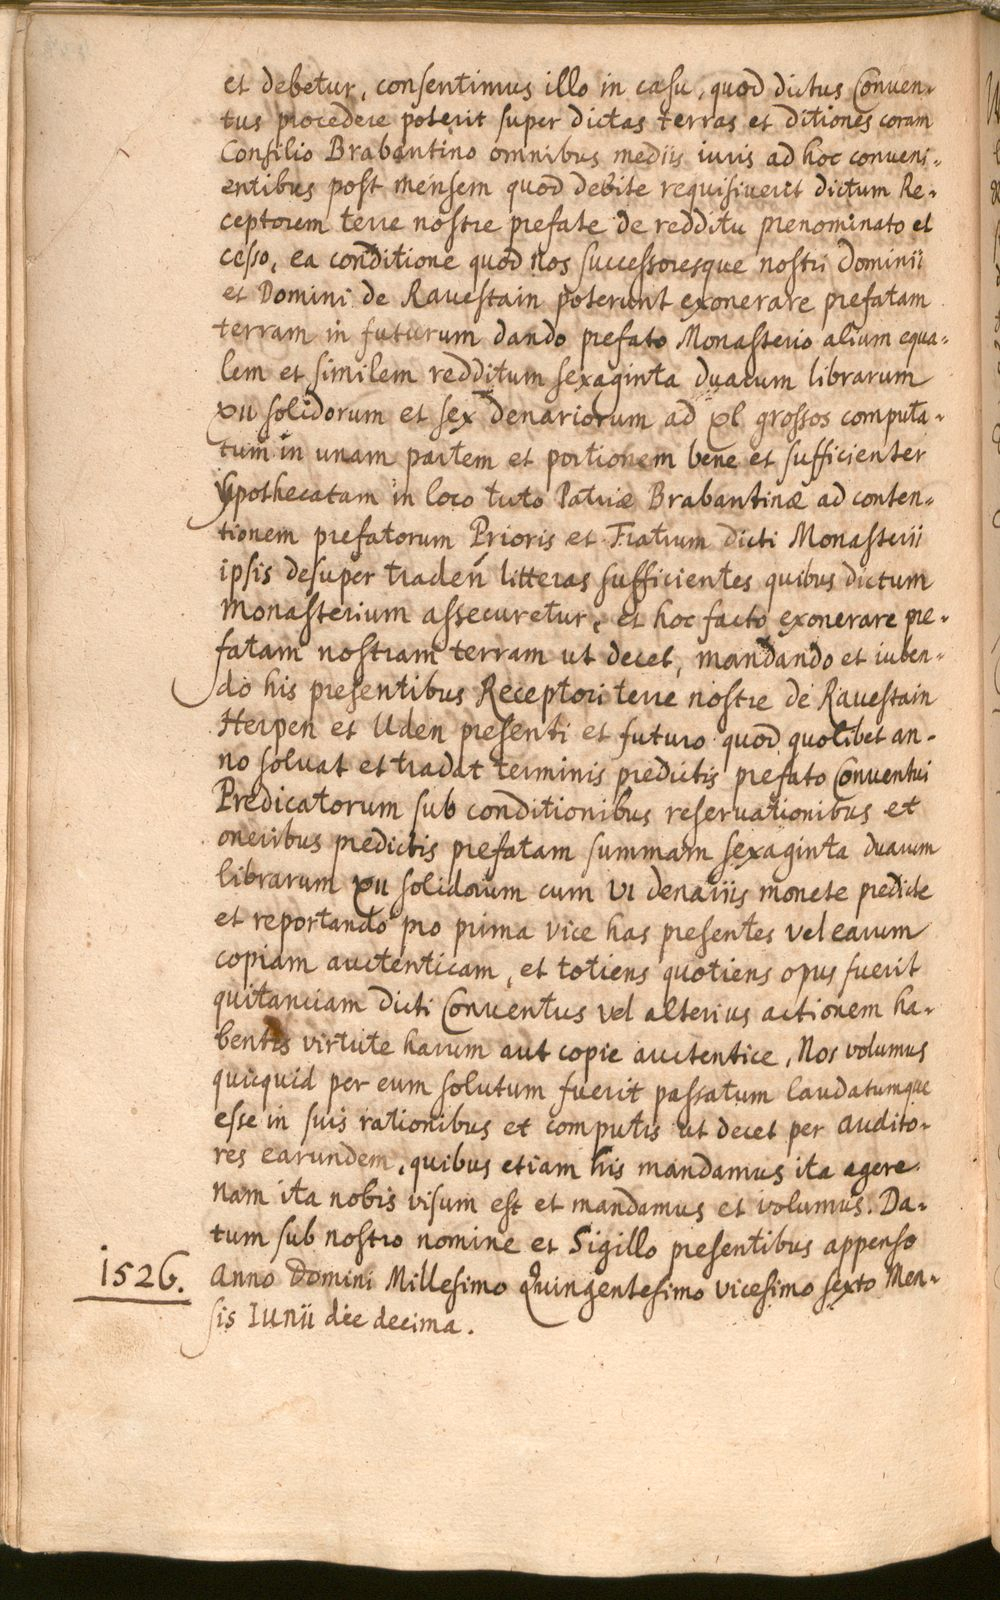 et debetur, consentimus illo in casu, quod dictus Conven-
tus procedere poterit super dictas terras et ditiones coram
Consilio Brabantino omnibus mediis iuris ad hoc conveni-
entibus post mensem quod debite requisiverit dictum Re-
ceptorem terre nostre prefate de redditu prenominato et
cesso, ea conditione quod nos successoresque nostri dominii
et Domini de Ravestain poterunt exonerare prefatam
terram in futurum dando prefato Monasterio alium equa-
lem et similem redditum sexaginta duarum librarum
xii solidorum et sex denariorum ad xl grossos computa-
tum in unam partem et portionem bene et sufficienter
ypothecatam in loco tuto Patriæ Brabantinæ ad conten-
tionem prefatorum Prioris et Fratrum dicti Monasterii
ipsis desuper traden litteras sufficientes quibus dictum
Monasterium assecuretur, et hoc facto exonerare pre-
fatam nostram terram ut decet, mandando et iuben-
do his presentibus Receptori terre nostre de Ravestain
Herpen et Uden presenti et futuro quod quolibet an-
no solvat et tradat terminis predictis prefato Conventui
Predicatorum sub conditionibus reservationibus et
oneribus predictis prefatam summam sexaginta duarum
librarum xii solidorum cum vi denariis monete predicte
et reportando pro prima vice has presentes vel earum
copiam auctenticam, et totiens quotiens opus fuerit
quitanciam dicti Conventus vel alterius actionem ha-
bentis virtute harum aut copie auctentice, Nos volumus
quicquid per eum solutum fuerit passatum laudatumque
esse in suis rationibus et computis ut decet per audito-
res earundem, quibus etiam his mandamus ita agere.
nam ita nobis visum est et mandamus et volumus. Da-
tum sub nostro nomine et Sigillo presentibus appenso
1526. Anno Domini Millesimo Quingentesimo vicesimo sexto Men-
sis Iunii die decima.